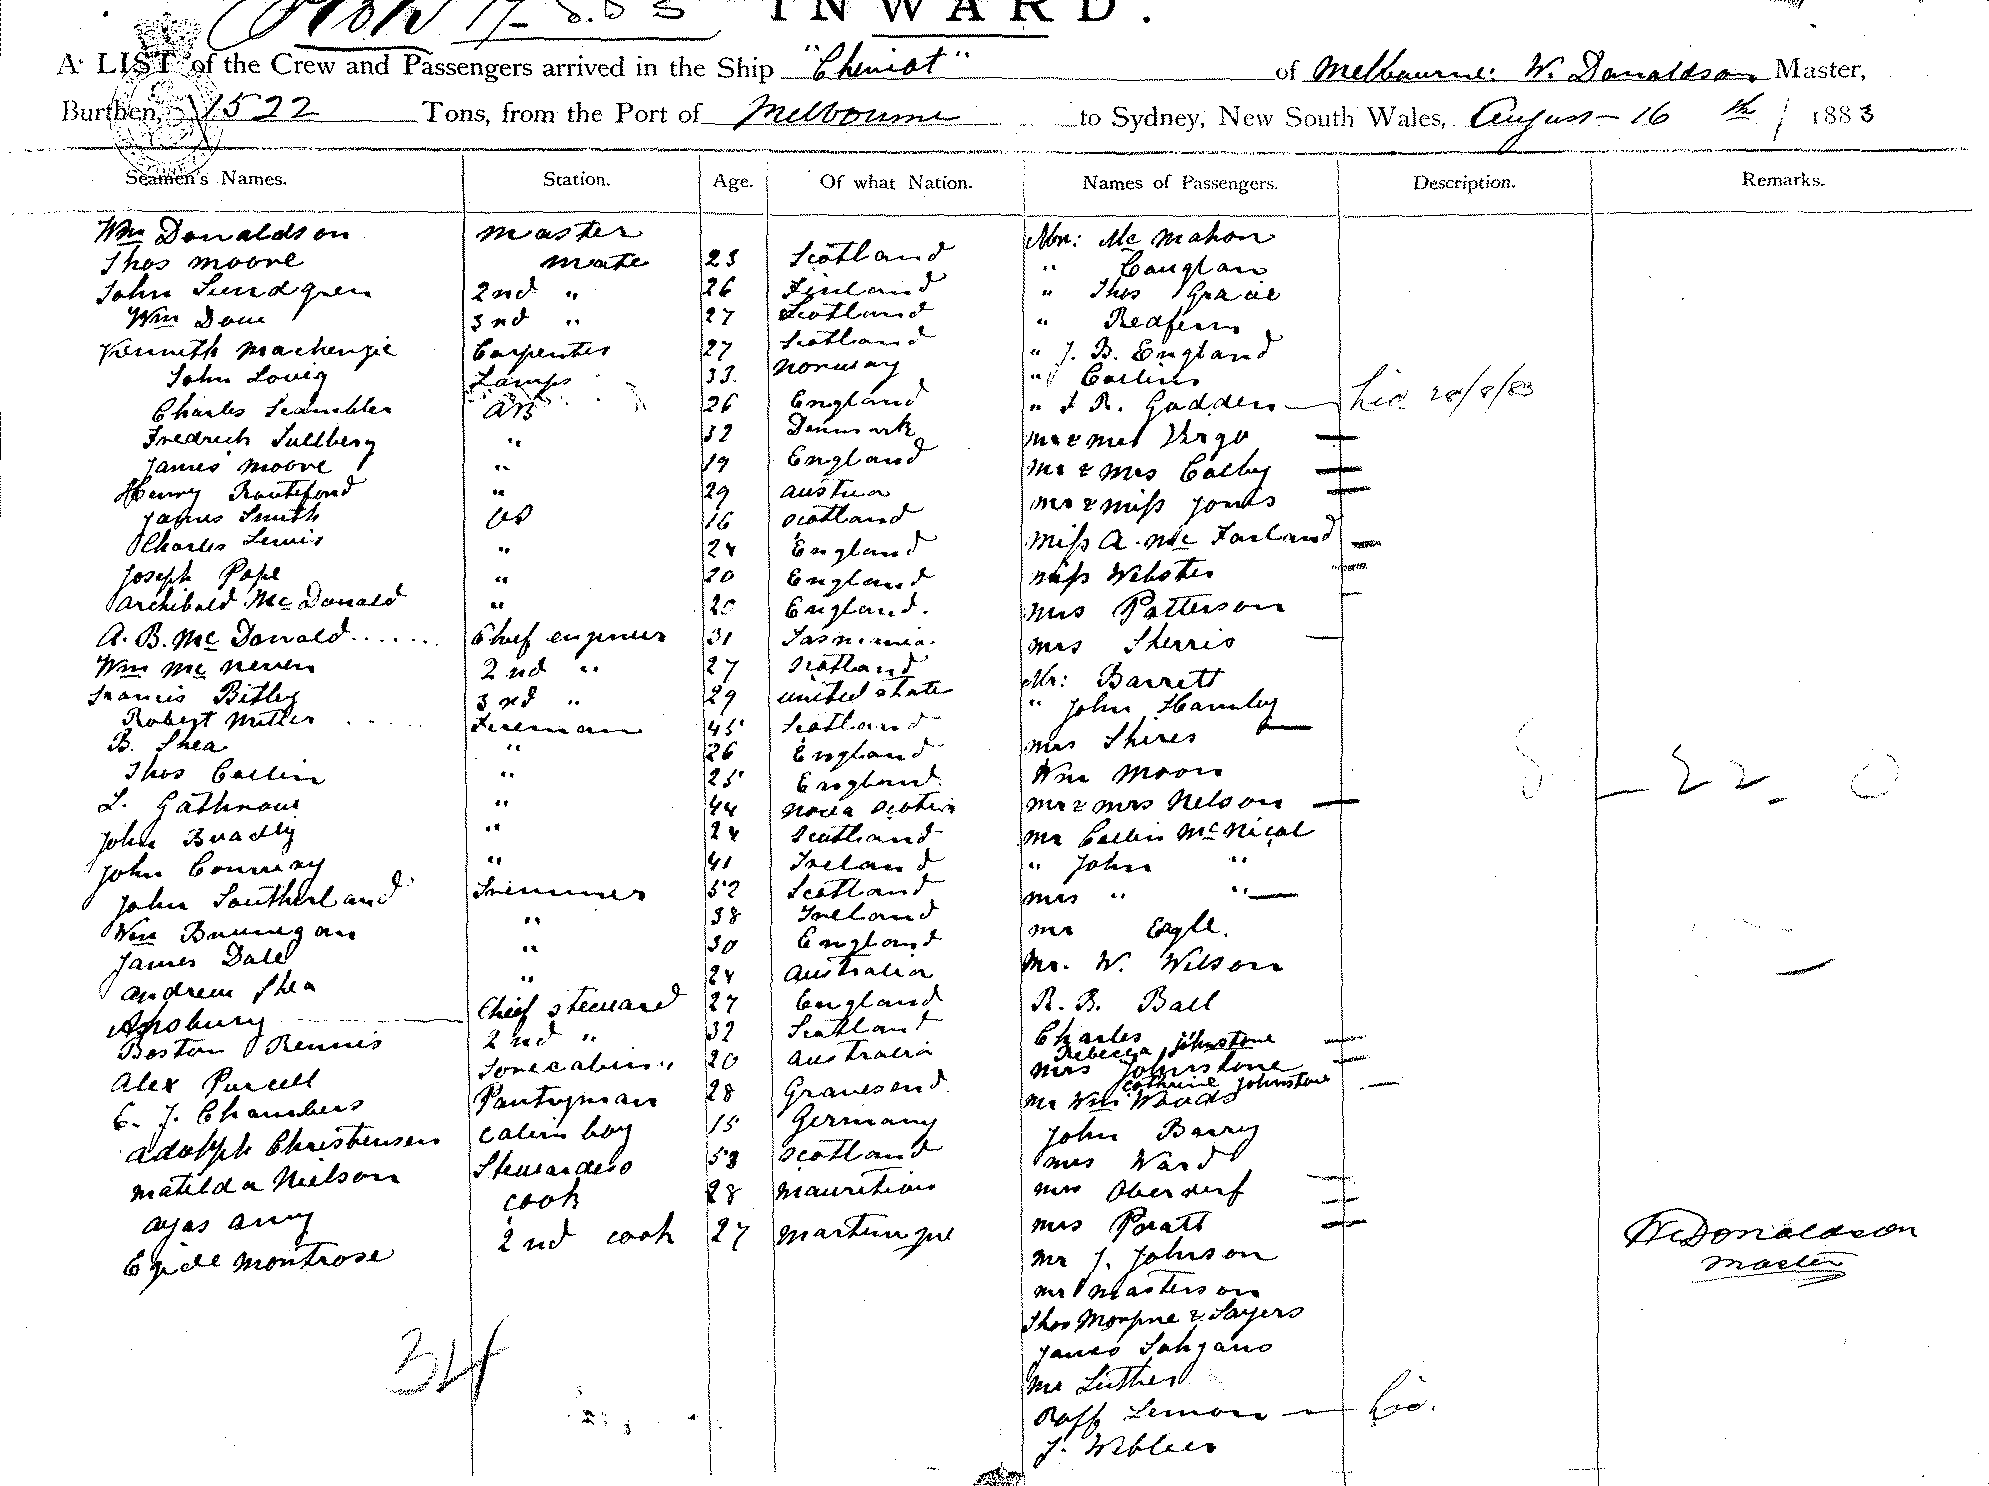 INWARD.
A LIST of the Crew and Passengers arrived in the Ship "Cheviot" of Melbourne. W. Donaldson Master,
Burthen, 1522 Tons, from the Port of Melbourne to Sydney, New South Wales, August 16th / 1883
Seamen's Names. Station. Age. Of what Nation. Names of Passengers. Description. Remarks.
Wm Donaldson master Mr: Mc Mahon
Thos Moore mate 23 Scotland " Couglan
John Sundgren 2nd " 26 Finland " Thos Gracie
Wm Dove 3rd " 27 Scotland " Redfern
Kenneth Mackenzie Carpenter 27 Scotland " J. B. England
John Lovig Lamps 33 Norway " Collins
Charles Scambler AB 26 England " J R. Godden Lic 20/8/83
Fredrich Sullberg " 32 Denmark Mr & Mrs Virgo
James Moore " 19 England Mr & Mrs Colby
Henry " 29 Austria Mr & Miss Jones
James Smith OS 16 Scotland Miss A. Mc Farland
Charles Lewis " 24 England Miss Webster
Joseph Pope " 20 England Mrs Patterson
Archibald Mc Donald " 20 England. Mrs Sherris
A. B. Mc Donald Chief engineer 31 Tasmania. Mr: Barrett
Wm Mc Neven 2nd " 27 Scotland " John Hamley
Francis Bitley 3rd " 29 United State Mrs Shires
Robert Miller Fireman 45 Scotland Wm Moon
B. Shea " 26 England Mr & Mrs Nelson
Thos Collin " 25 England Mr Collin McNicol
L. " 44 Nova Scotia " John "
John Bradly " 24 Scotland Mrs " "
John Conway " 41 Ireland Mr Eagle.
John Southerland Trimmer 52 Scotland Mr. W. Wilson
Wm Brannegan " 38 Ireland R. B. Ball
James Dale " 30 England Charles Johnstone
Andrew Shea " 24 Australia Rebecca
Ansbury Chief steward 27 England Mrs Johnstone
Boston Rennis 2nd " 32 Scotland Catherine Johnstone
Alex Purcell Forecabin " 20 Australia Mr Wm Woods
C. J. Chambers Pantryman 28 Gravesend John Barry
Adolph Christensen Cabin boy 15 Germany Mrs Ward
Matilda Nielson Stewardess 53 Scotland Mrs Oberdorf
Ayas Amy cook 28 Mauritius Mrs Pratt
Egide Montrose 2nd cook 27 Martinique Mr J. Johnson
W Donaldson
Master
Mr Masterson
Thos & Sayers
James
Mr Luther
34
Lemon Lic.
J.